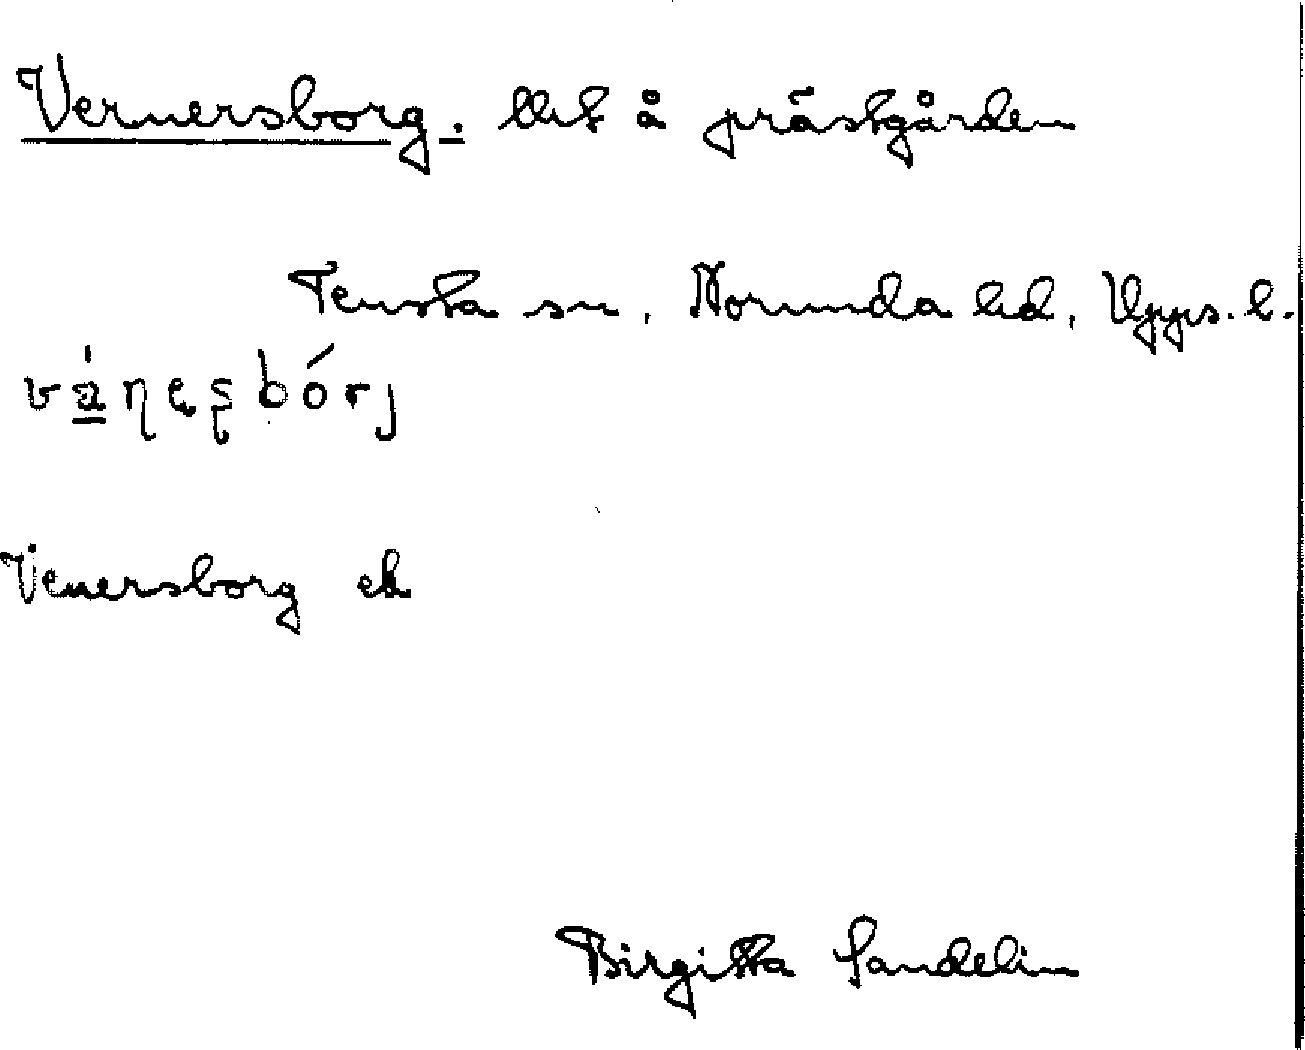 Vernersborg. lht å prästgården
Tensta sn, Norunda hd, Upps. l.
vá̱ɳęʂbórj
Venersborg ek
Birgitta Sandelin